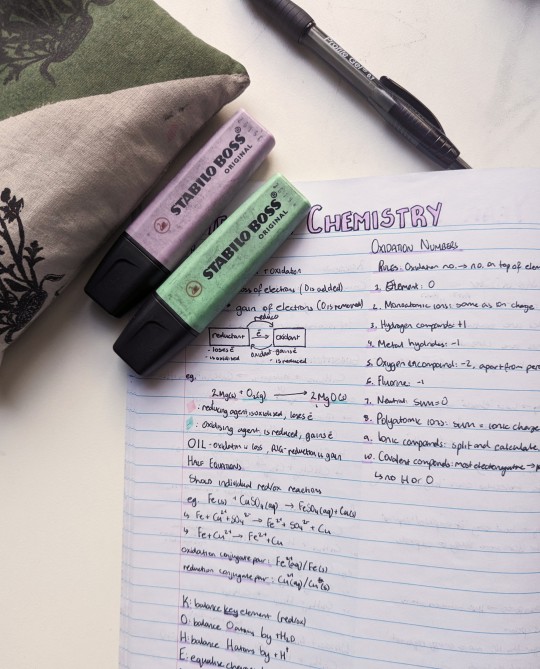 STABILO BOSS®
ORIGINAL
STABILO BOSS®
ORIGINAL
CHEMISTRY
oxidation
of electrons (O is added)
gain of electrons (O is removed)
reduces
reductant → oxidant
ē
loses ē
gains ē
is oxidised
is reduced
eg.
2Mg(s) + O₂(g) → 2MgO(s)
: reducing agent is oxidised, loses ē
: oxidising agent is reduced, gains ē
OIL: oxidation is loss, RIG: reduction is gain
HALF EQUATIONS
Shows individual red/ox reactions
eg. Fe(s) + CuSO₄(aq) → FeSO₄(aq) + Cu(s)
↳ Fe + Cu²⁺ + SO₄²⁻ → Fe²⁺ + SO₄²⁻ + Cu
↳ Fe + Cu²⁺ → Fe²⁺ + Cu
oxidation conjugate pair: Fe²⁺(aq)/Fe(s)
reduction conjugate pair: Cu²⁺(aq)/Cu(s)
K: balance key element (red/ox)
O: balance O atoms by + H₂O
H: balance H atoms by + H⁺
E: equalise
OXIDATION NUMBERS
Rules: Oxidation no. → no. on top of
1. Element: 0
2. Monoatomic ions: same as ion charge
3. Hydrogen compounds: +1
4. Metal hydrides: -1
5. Oxygen in compound: -2, apart from
6. Fluorine: -1
7. Neutral: sum = 0
8. Polyatomic ions: sum = ionic charge
9. Ionic compounds: split and calculate
10. Covalent compounds: most electronegative →
↳ no H or O